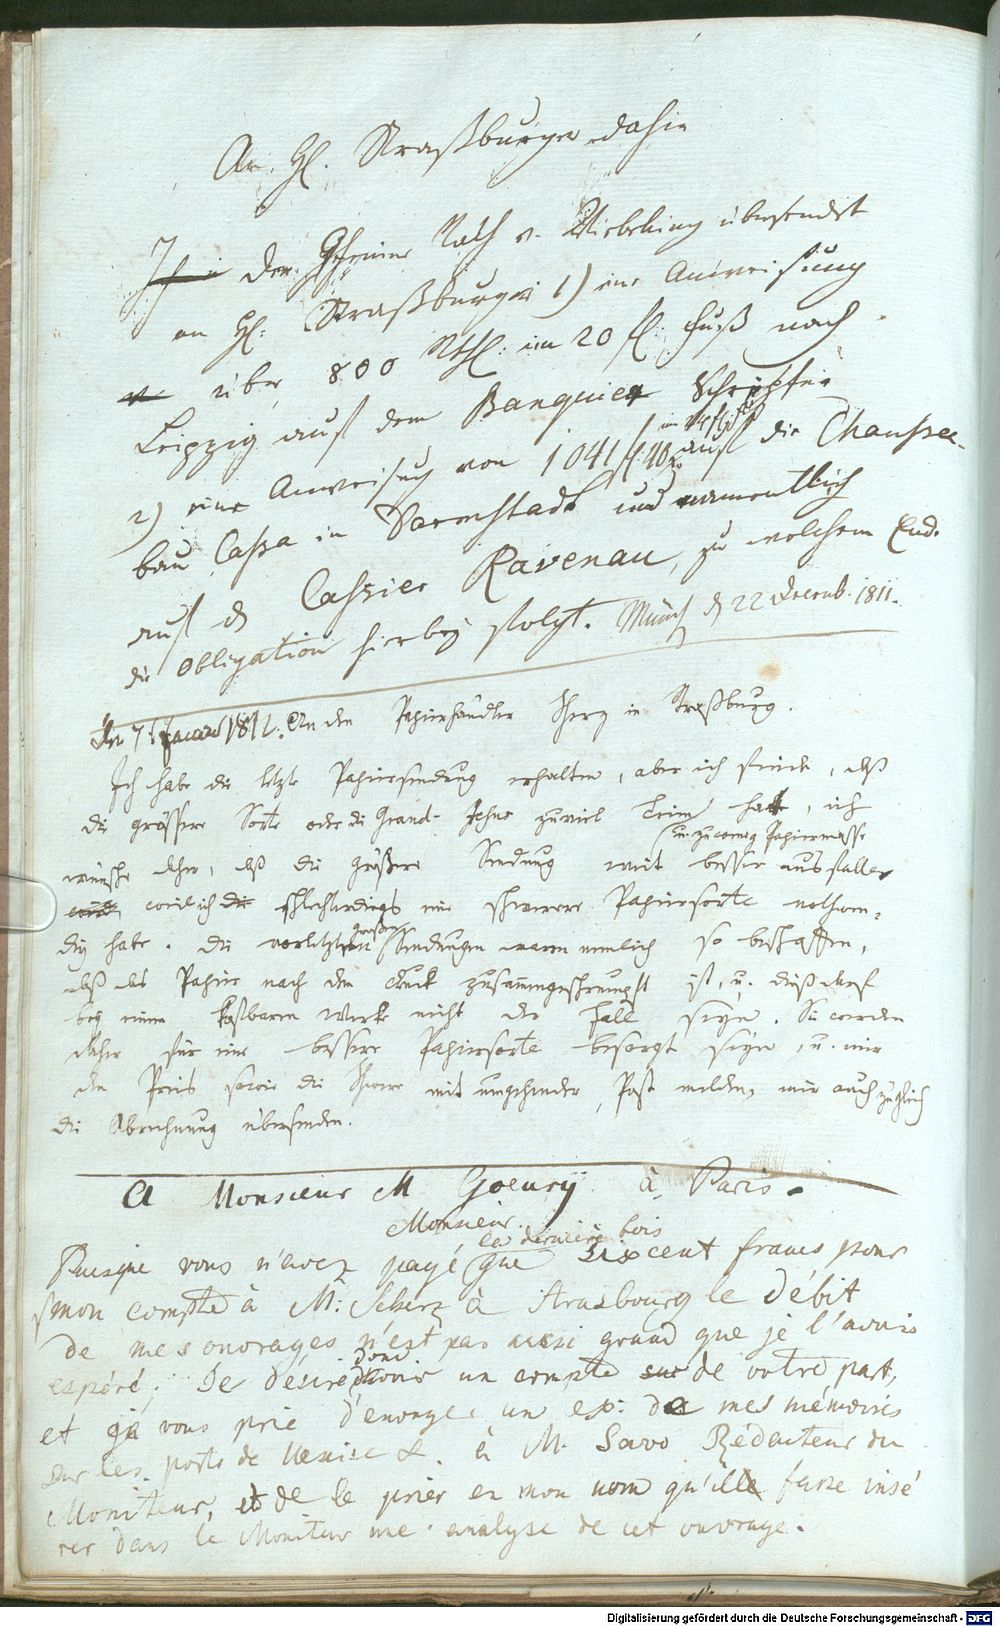 An H. Straßburger dahier
Der Geheime Rath v. Wiebeking übersendet
an H: Straßburger 1) eine Anweisung
über 800 Rthl: im 20 fl. Fuß nach
Leipzig auf dem Banquier
2) eine Anweisung von 1041 f. 40 x. auf die Chaussee-
bau Cassa in Darmstadt und namentlich
auf d Cassier Ravenau, zu welchem End.
die Obligation hierbey folgt. Münch d 22 Decemb. 1811.
Den 7 Januar 1812. An den Papierhändler Scherz in Straßburg.
Ich habe die letzte Papiersendung erhalten, aber ich finde, daß
die grössere Sorte oder die Grand- zuviel Leim hatte, ich
u. zu wenig Papiermasse
wünsche daher, daß die größere Sendung weit besser ausfalle
weil ich schlechterdings eine schwerere Papiersorte nothwen-
dig habe. Die vorletzten großen Sendungen waren nemlich so beschaffen,
daß das Papier nach dem Druck zusammengeschrumpft ist, u. dieß darf
bey einem kostbaren Werke nicht der Fall seyn. Sie werden
daher für eine bessere Papiersorte besorgt seyn, u. mir
den Preis sowie die Schwere mit umgehender Post melden, mir auch zugleich
die Abrechnung übersenden.
A Monsieur M Goeury à Paris.
Monsieur.
la derniere fois
Puisque vous n'avez payé que six cent francs pour
mon compte à M: Scherz à Strasbourg le débit
de mes ouvrages n'est pas aussi grand que je l'avois
espéré; Je désire donc d'avoir un compte sur de votre part,
et je vous prie d'envoyer un ex: de mes mémoires
sur les ports de Venise &. à M. Savo Rédacteur du
Moniteur, et de le prier en mon nom qu'il fasse insé
rer dans le Moniteur une analyse de cet ouvrage.
Digitalisierung gefördert durch die Deutsche Forschungsgemeinschaft - DFG